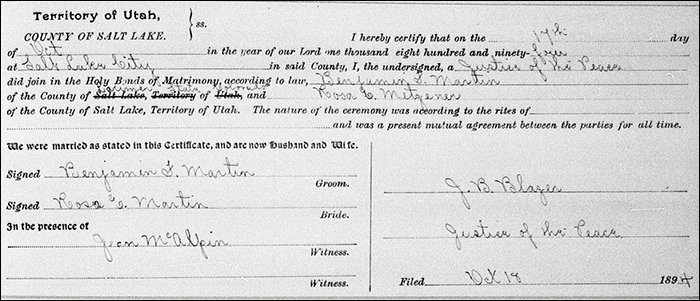 Territory of Utah,
COUNTY OF SALT LAKE. ss.
I hereby certify that on the 17th day
of Oct in the year of our Lord one thousand eight hundred and ninety-four
at Salt Lake City in said County, I, the undersigned, a Justice of the Peace
did join in the Holy Bonds of Matrimony, according to law, Benjamin F. Martin
of the County of Salt Lake, Territory of Utah, and Rosa E. Metzener
of the County of Salt Lake, Territory of Utah. The nature of the ceremony was according to the rites of
and was a present mutual agreement between the parties for all time.
We were married as stated in this Certificate, and are now Husband and Wife.
Signed Benjamin F. Martin
Groom.
Signed Rosa E. Martin
Bride.
In the presence of
Jean McAlpin
Witness.
Witness.
J. B. Blazer
Justice of the Peace
Filed Oct 18 1894